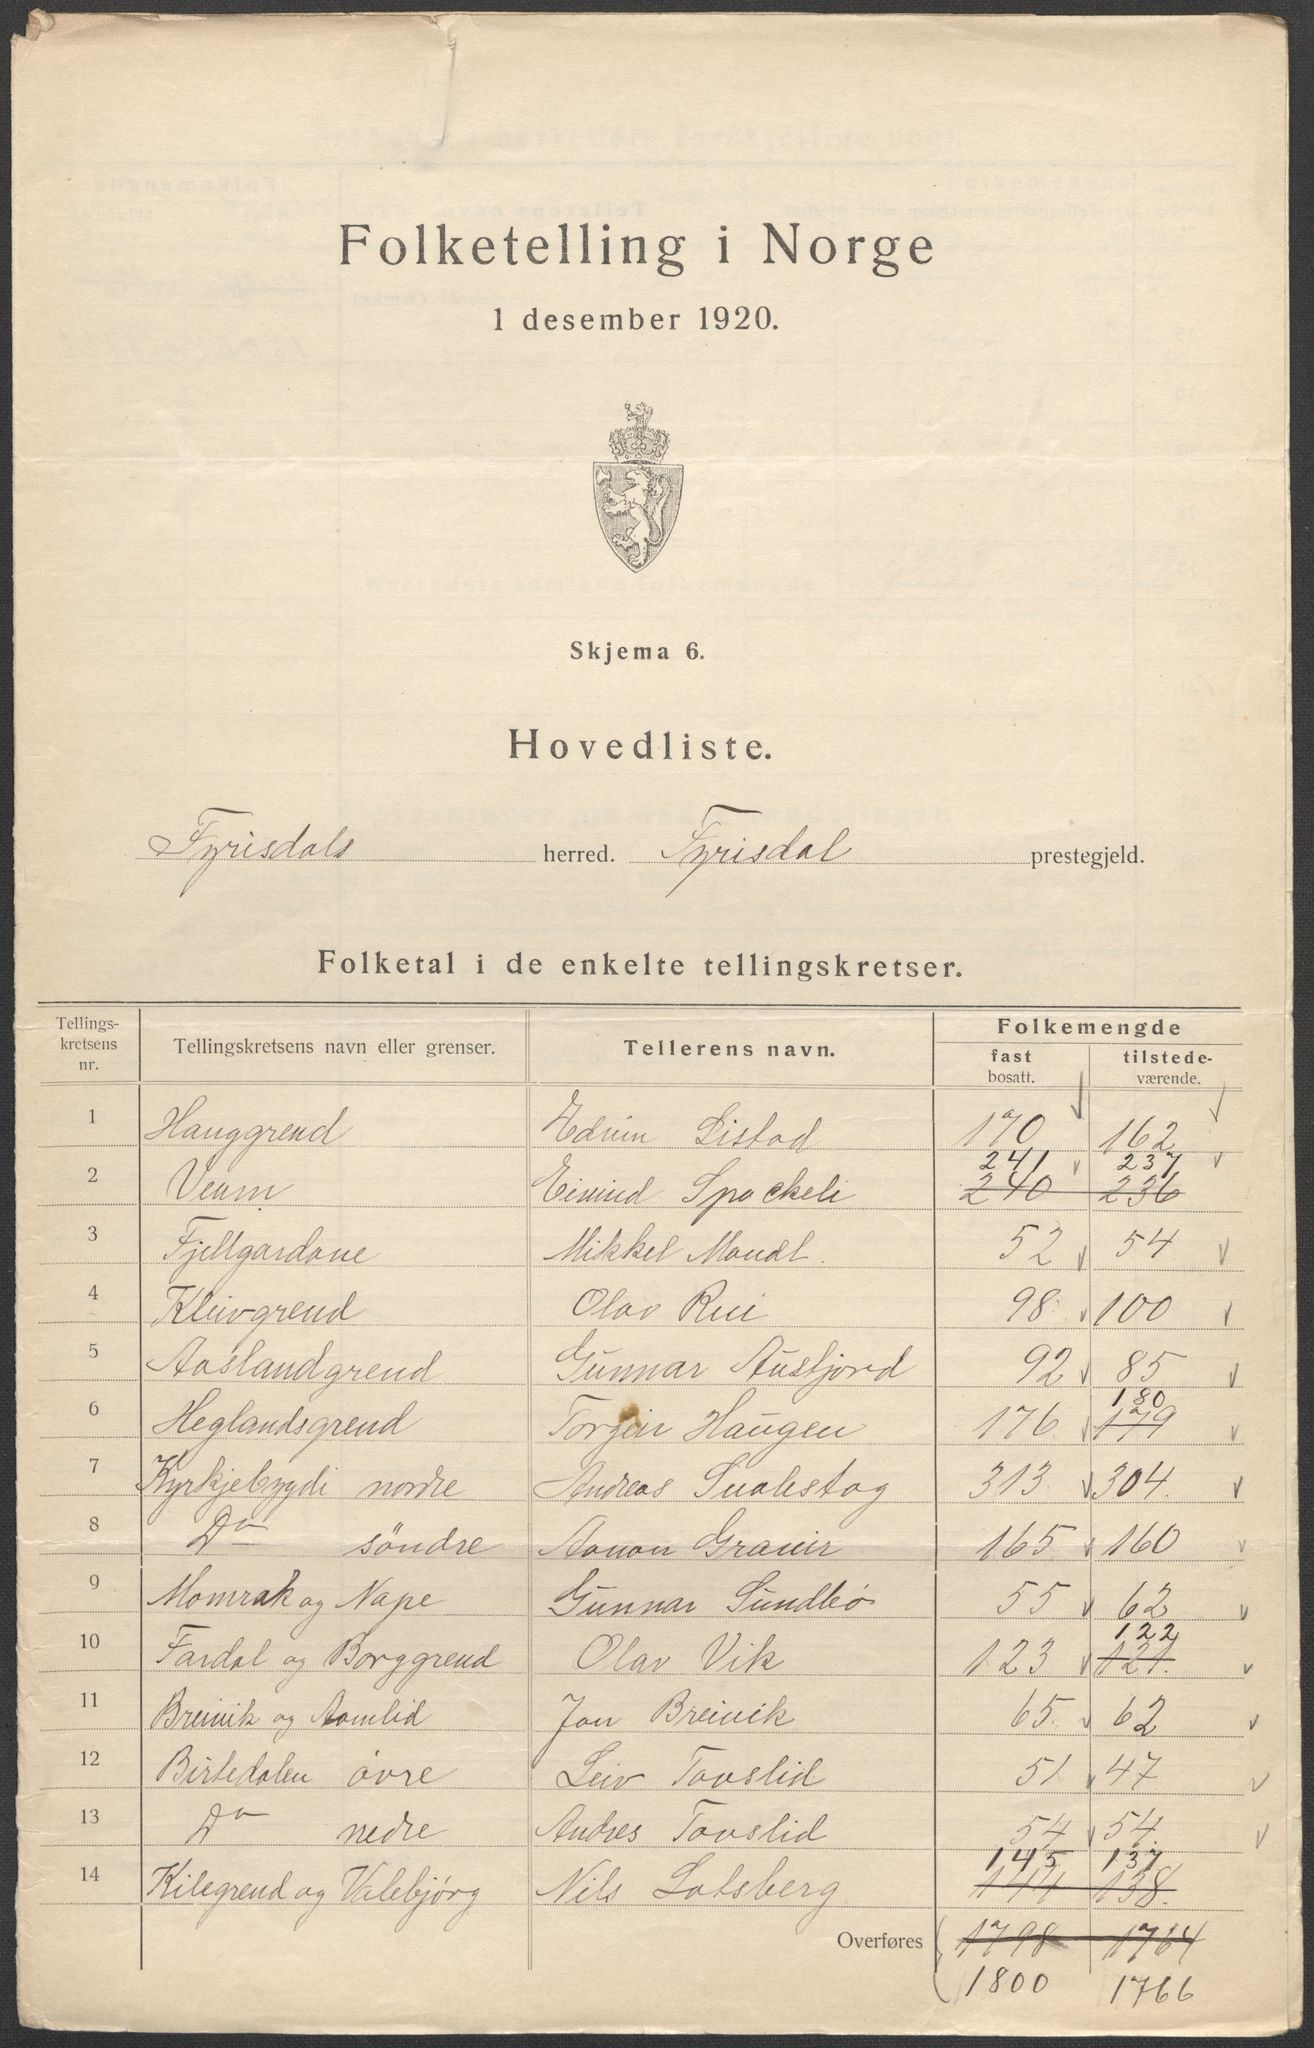 Folketelling i Norge
1 desember 1920.
Skjema 6.
Hovedliste.
Fyrisdals herred. Fyrisdal prestegjeld.
Folketal i de enkelte tellingskretser.
Tellings-kretsens nr. Tellingskretsens navn eller grenser. Tellerens navn. Folkemengde
fast bosatt. tilstede-værende.
1 Hauggrend Edvin Listad 170 162
241 237
2 Veum Eivind Spockeli 240 236
3 Fjellgardane Mikkel Mandt. 52 54
4 Kleivgrend Olav Rui 98 100
5 Aaslandgrend Gunnar Ausfjord 92 85
180
6 Heglandsgrend Torgeir Haugen 176 179
7 Kyrkjebygdi nordre Andreas 313 304
8 Do søndre Aanon 165 160
9 Momrak og Nape Gunnar Sundbø 55 62
122
10 Fardal og Borggrend Olav Vik 123 121.
11 Breivik og Aamlid Jon Breivik 65 62
12 Birtedalen øvre Leiv Tovslid 51 47
13 Do nedre Andres Tovslid 54 54
145 137
14 Kilegrend og Valebjørg Nils Lotsberg 144 138.
Overføres 1798 1764
1800 1766